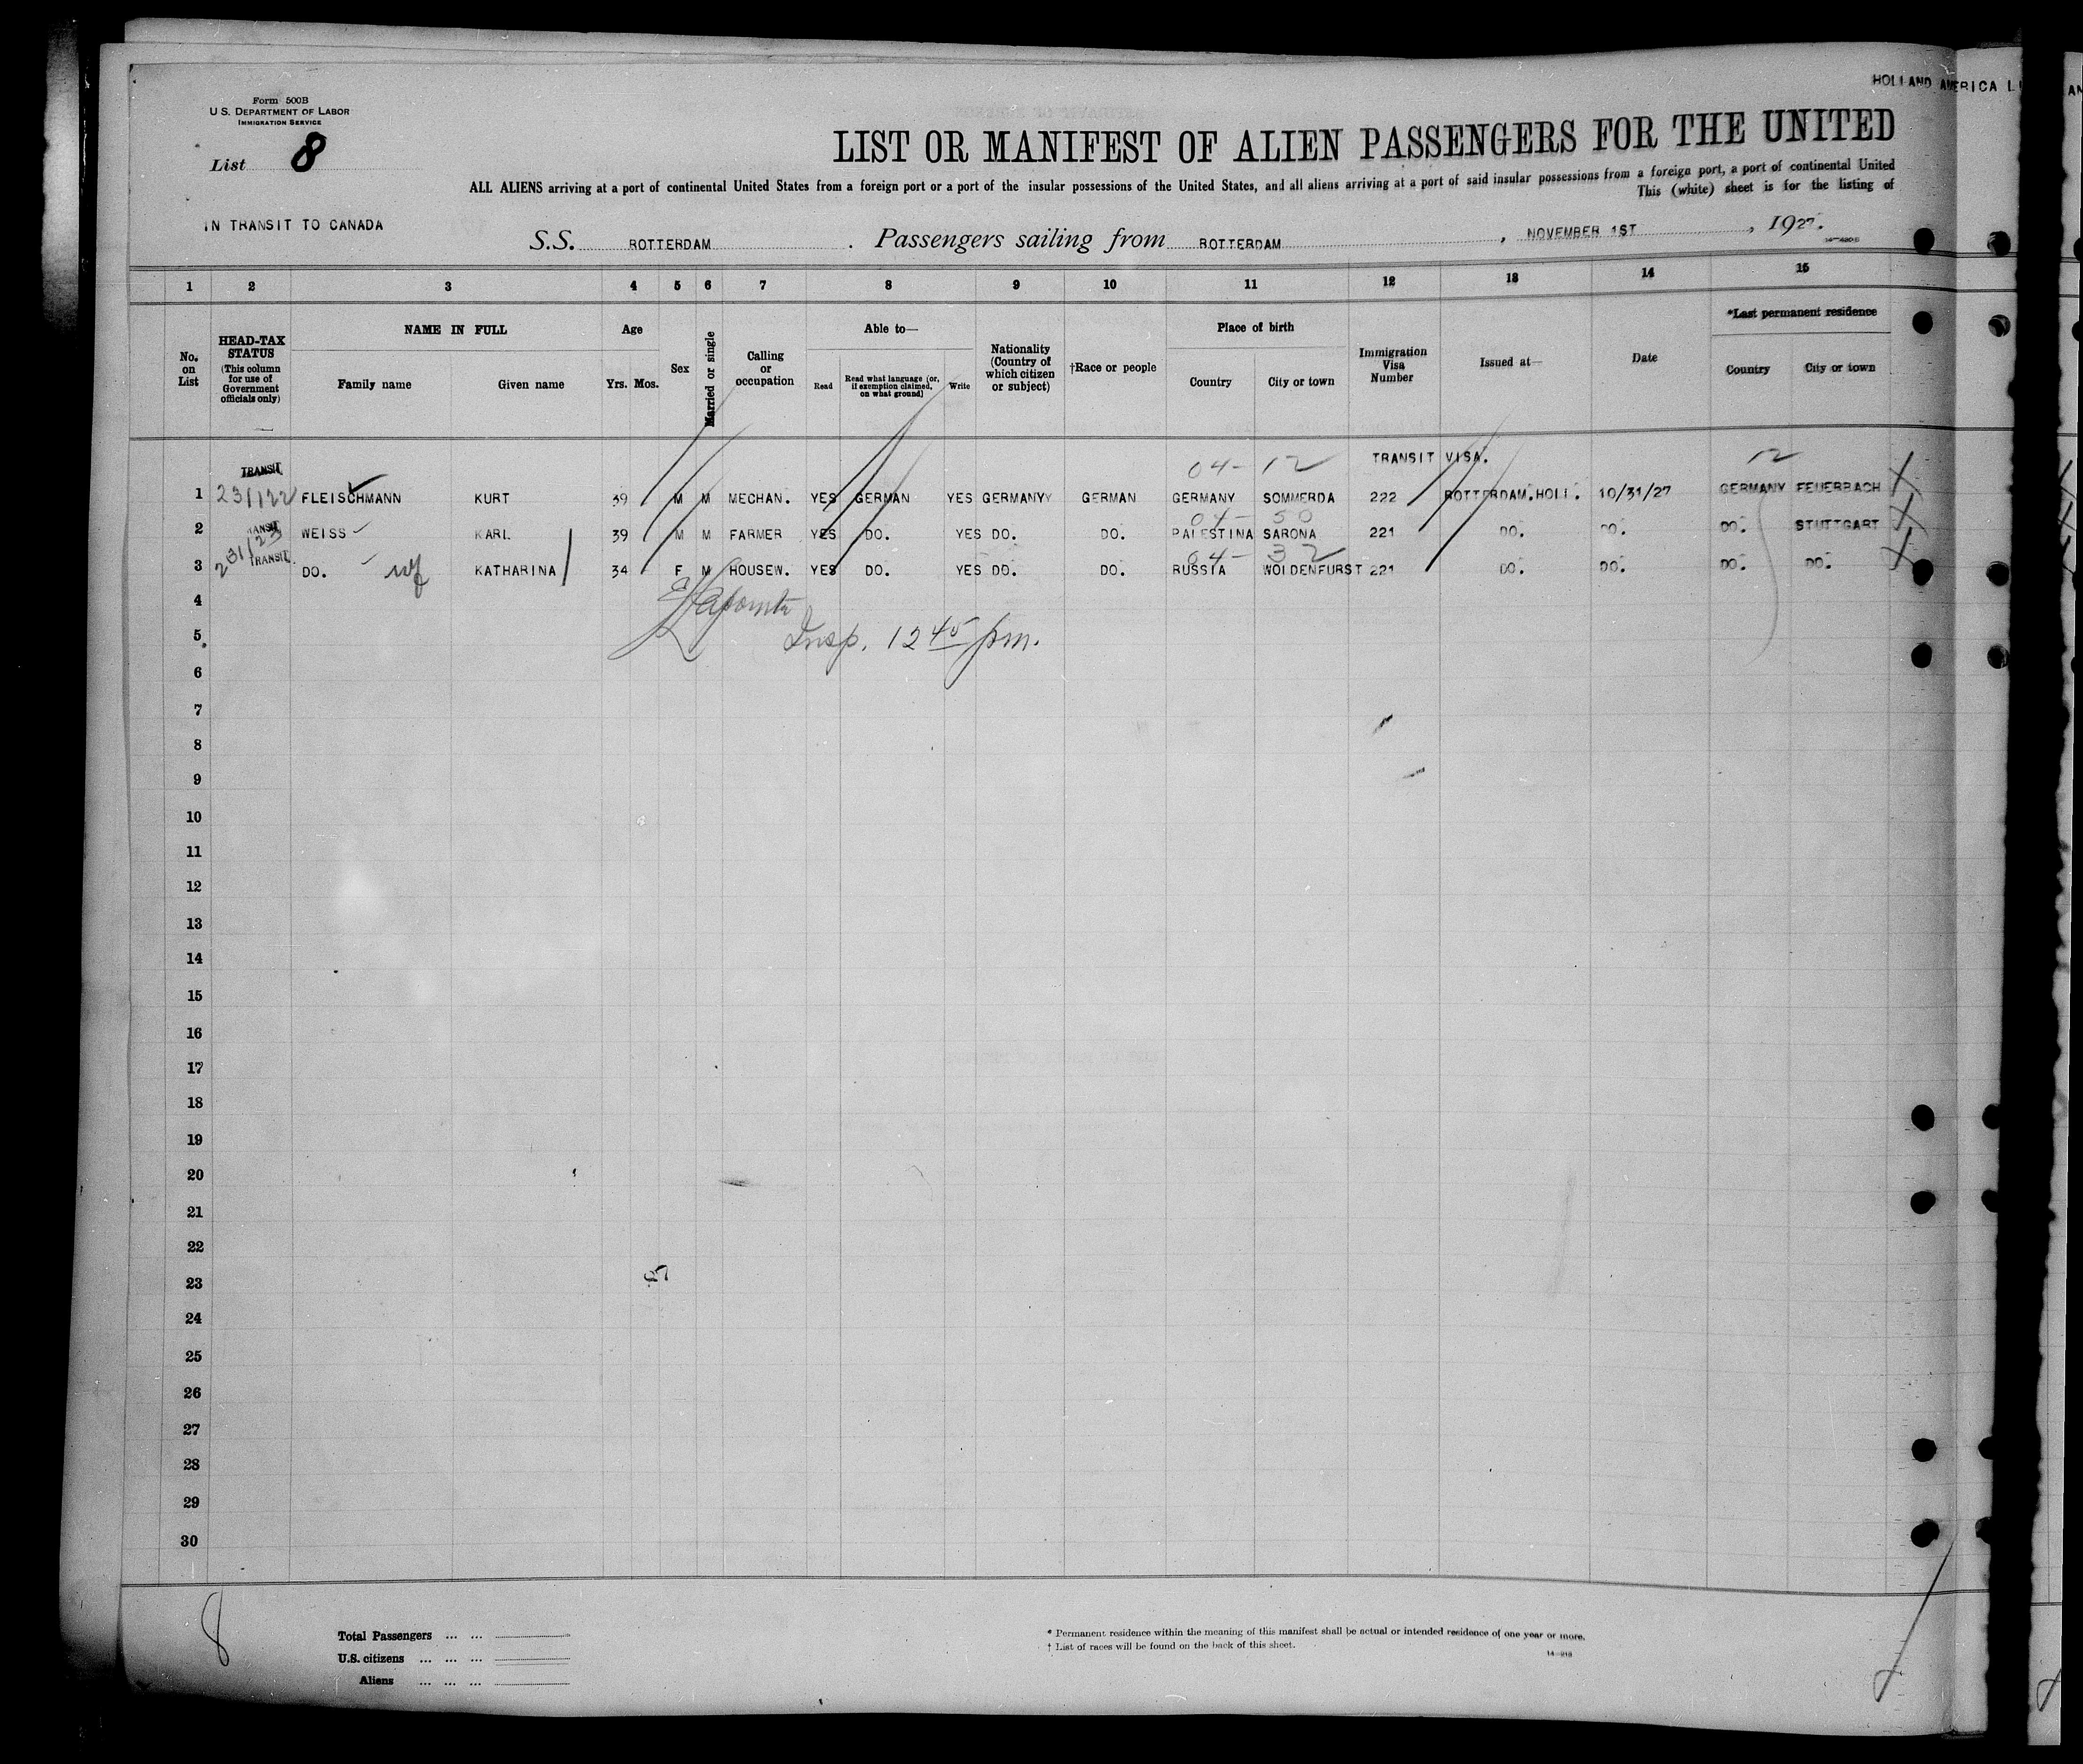 HOLLAND AMERICA L
Form 500B
U. S. DEPARTMENT OF LABOR
IMMIGRATION SERVICE
List 8
LIST OR MANIFEST OF ALIEN PASSENGERS FOR THE UNITED
ALL ALIENS arriving at a port of continental United States from a foreign port or a port of the insular possessions of the United States, and all aliens arriving at a port of said insular possessions from a foreign port, a port of continental United
This (white) sheet is for the listing of
IN TRANSIT TO CANADA
S.S. ROTTERDAM. Passengers sailing from ROTTERDAM, NOVEMBER 1ST, 1927.
1 2 3 4 5 6 7 8 9 10 11 12 13 14 15
No. on List
HEAD-TAX STATUS (This column for use of Government officials only)
NAME IN FULL
Family name Given name
Age
Yrs. Mos.
Sex
Married or single
Calling or occupation
Able to—
Read
Read what language (or, if exemption claimed, on what ground)
Write
Nationality (Country of which citizen or subject)
†Race or people
Place of birth
Country City or town
Immigration Visa Number
Issued at—
Date
*Last permanent residence
Country City or town
TRANSIT 04- 12 TRANSIT VISA. 12
1 231122 FLEISCHMANN KURT 39 M M MECHAN. YES GERMAN YES GERMANYY GERMAN GERMANY SOMMERDA 222 ROTTERDAM.HOLL. 10/31/27 GERMANY FEUERBACH
04- 50
2 23123 WEISS KARL 39 M M FARMER YES DO. YES DO. DO. PALESTINA SARONA 221 DO. DO. DO. STUTTGART
TRANSIT. 04- 32
3 DO. wf KATHARINA 34 F M HOUSEW. YES DO. YES DO. DO. RUSSIA WOLDENFURST 221 DO. DO. DO. DO.
4
5 Insp. 12 45 pm.
6
7
8
9
10
11
12
13
14
15
16
17
18
19
20
21
22
23
24
25
26
27
28
29
30
8
Total Passengers ... ...
U.S. citizens ... ... ...
Aliens ... ... ...
* Permanent residence within the meaning of this manifest shall be actual or intended residence of one year or more.
† List of races will be found on the back of this sheet.